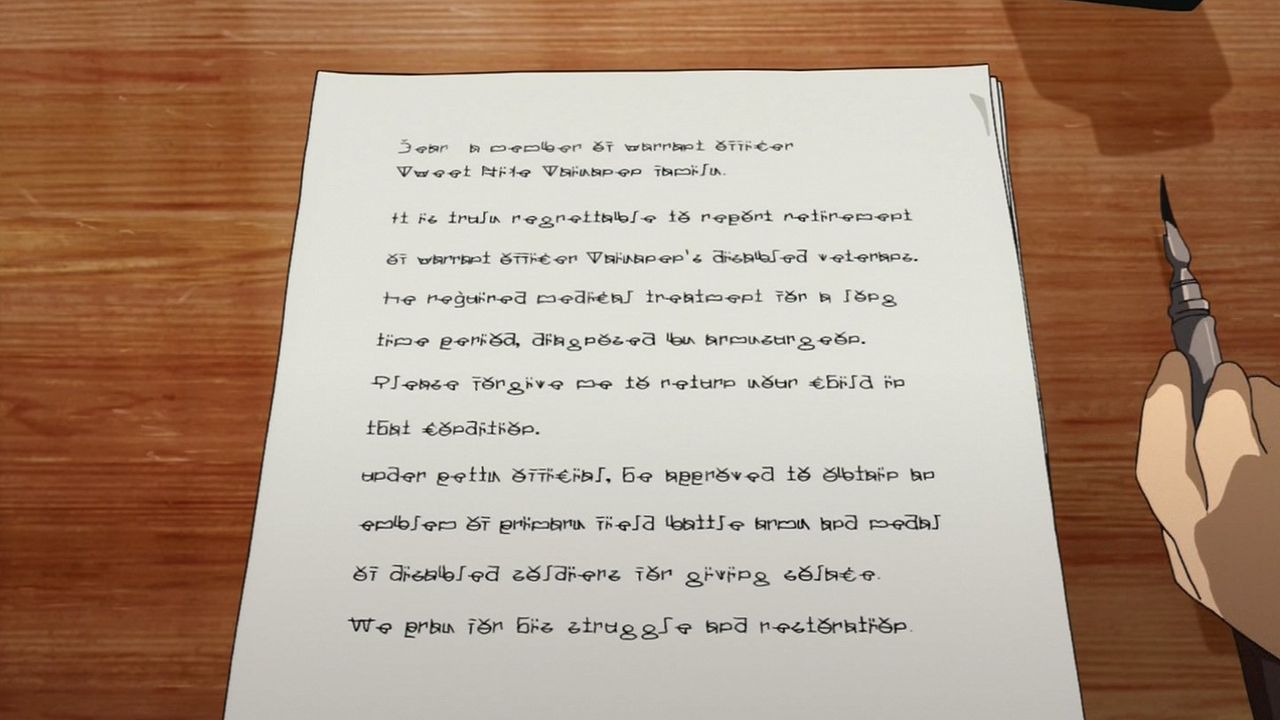 Dear a member of warrant officer
Tweet Nile Vainanen family.
It is truly regrettable to report retirement
of warrant officer Vainanen's disabled veterans.
He required medical treatment for a long
time period, diagnosed by army surgeon.
Please forgive me to return your child in
that condition.
under petty official, he approved to obtain an
emblem of primary field battle army and medal
of disabled soldiers for giving solace.
We pray for his struggle and restoration.